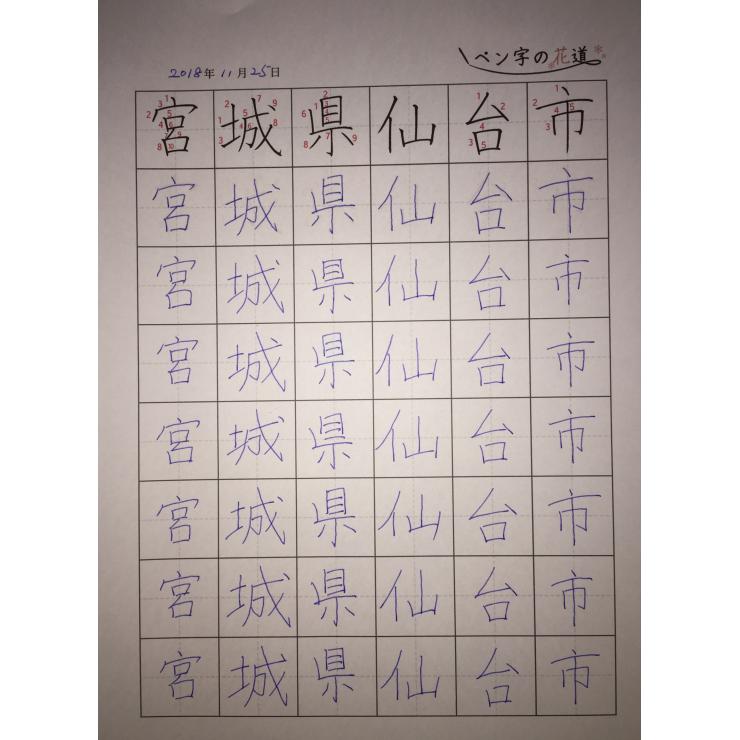 ペン字の花道
2018年11月25日
宮城県仙台市
宮城県仙台市
宮城県仙台市
宮城県仙台市
宮城県仙台市
宮城県仙台市
宮城県仙台市
宮城県仙台市